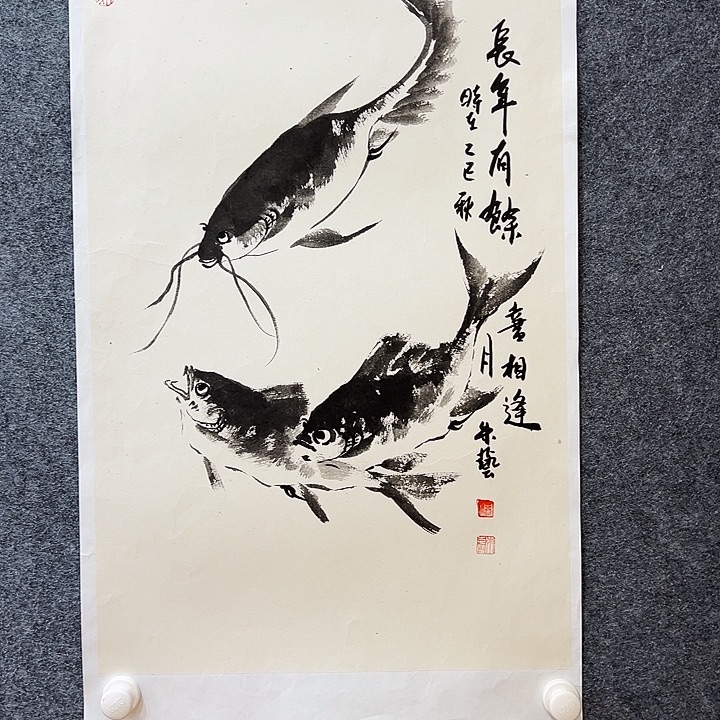 長年有餘
喜相逢
時在乙巳秋
月
朱藝